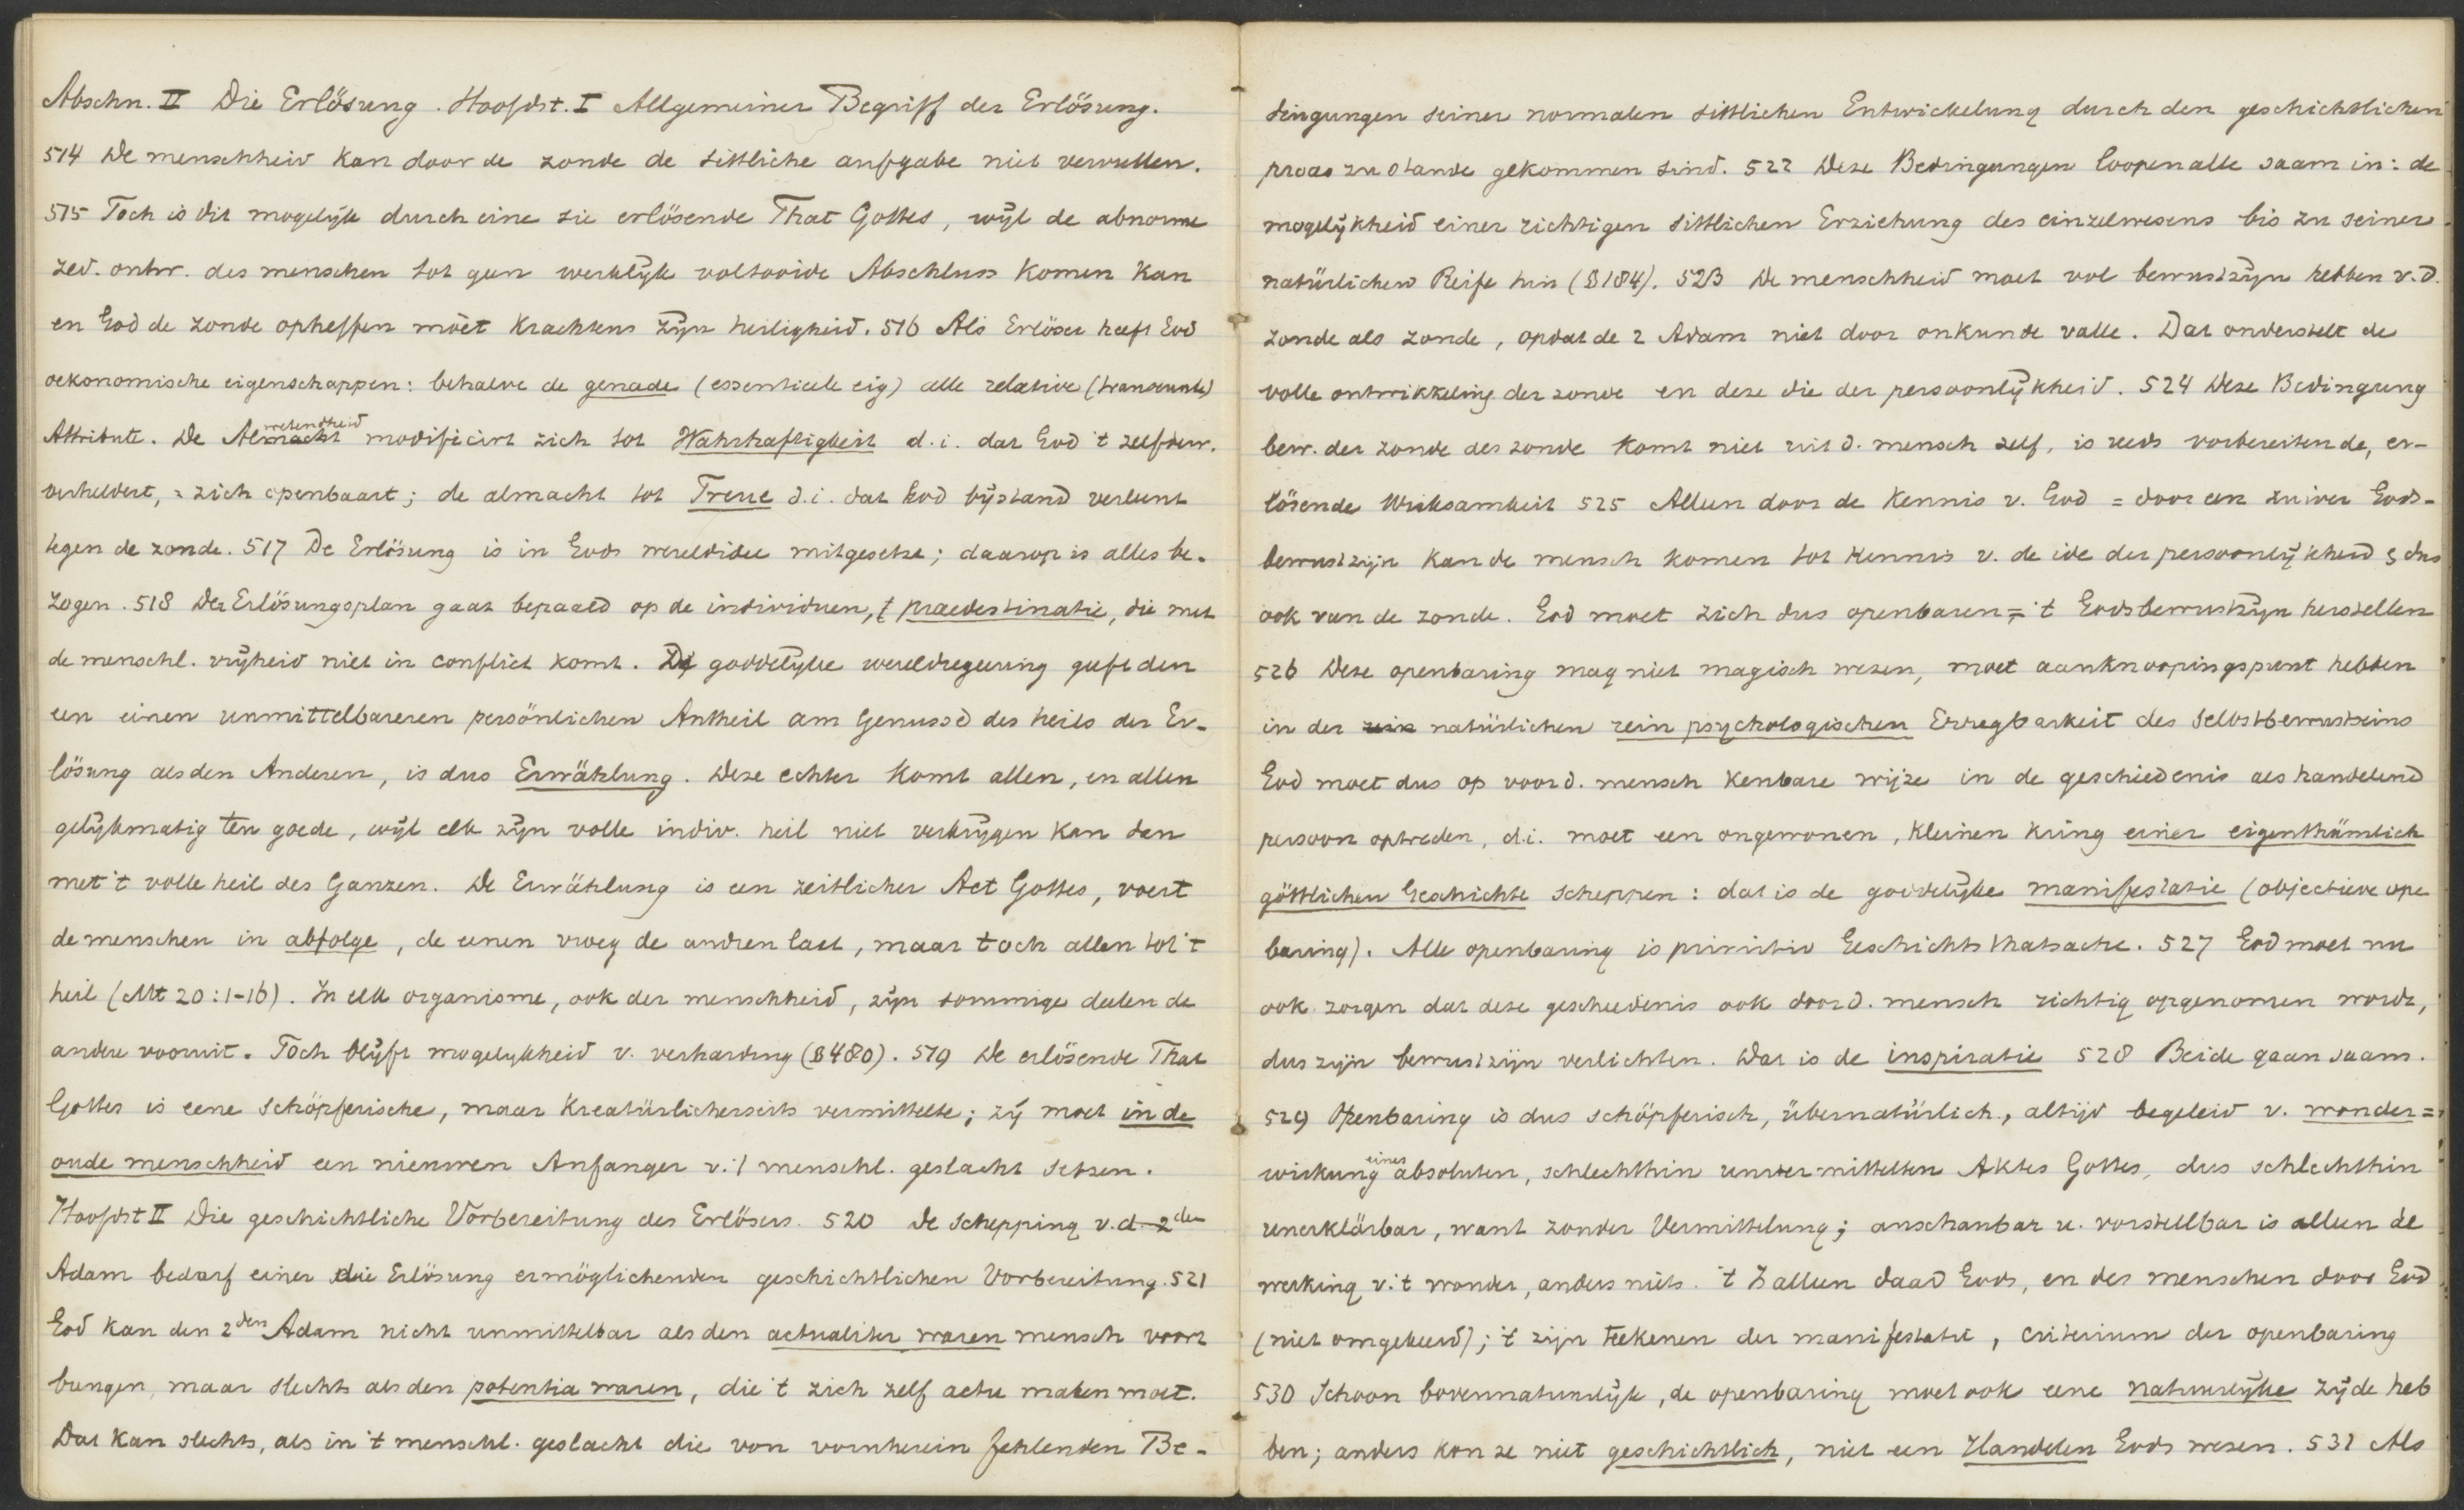 Abschn. II Die Erlösung. Hoofdst. I Allgemeiner Begriff der Erlösung.
514 De menschheid kan door de zonde de sittliche aufgabe niet vervullen.
515 Toch is dit mogelijk durch eine sie erlösende That Gottes, wijl de abnorme
zed. ontw. des menschen tot geen werklijk voltooide Abschluss komen kan
en God de zonde opheffen mòet krachtens zijn heiligheid. 516 Als Erlöser heeft God
oekonomische eigenschappen: behalve de genade (essentieele eig) alle relative (transeunte)
Attribute. De Alwetendheid modificirt zich tot Wahrhaftigkeit d.i. dat God 't zelfbew.
verheldert, = zich openbaart; de almacht tot Treue d.i. dat God bijstand verleent
tegen de zonde. 517 De Erlösung is in Gods wereldidee mitgesetzt; daarop is alles be-
zogen. 518 Der Erlösungsplan gaat bepaald op de individuen, † praedestinatie, die met
de menschl. vrijheid niet in conflict komt. De goddelijke wereldregeering geeft den
een einen unmittelbareren persönlichen Antheil am Genusse des heils der Er-
lösung als den Anderen, is dus Erwählung. Deze echter komt allen, en allen
gelijkmatig ten goede, wijl elk zijn volle indiv. heil niet verkrijgen kan dan
met 't volle heil des Ganzen. De Erwählung is een zeitlicher Act Gottes, voert
de menschen in abfolge, de eenen vroeg de andren laat, maar toch allen tot 't
heil (Mt 20:1-16). In elk organisme, ook der menschheid, zijn sommige deelen de
andere vooruit. Toch blijft mogelijkheid v. verharding (§480). 519 De erlösende That
Gottes is eene schöpferische, maar kreatürlicherseits vermittelte; zij moet in de
oude menschheid een nieuwen Anfanger v. 't menschl. geslacht setzen.
Hoofdst II Die geschichtliche Vorbereitung des Erlösers. 520 De schepping v. d. 2den
Adam bedarf einer die Erlösung ermöglichenden geschichtlichen Vorbereitung. 521
God kan den 2den Adam nicht unmittelbar als den actualiter waren mensch voort
brengen, maar slechts als den potentia waren, die 't zich zelf actu maken moet.
Dat kan slechts, als in 't menschl. geslacht die von vornherein fehlenden Be-
dingungen seiner normalen sittlichen Entwickelung durch den geschichtlichen
proces zu stande gekommen sind. 522 Deze Bedingungen loopen alle saam in: de
mogelijkheid einer richtigen sittlichen Erziehung des einzelwesens bis zu seiner
natürlichen Reife hin (§184). 523 De menschheid moet vol bewustzijn hebben v. d.
zonde als zonde, opdat de 2 Adam niet door onkunde valle. Dat onderstelt de
volle ontwikkeling der zonde en deze die der persoonlijkheid. 524 Deze Bedingung
bew. der zonde des zonde komt niet uit d. mensch zelf, is reeds vorbereitende, er-
lösende Wirksamkeit 525 Alleen door de kennis v. God = door een zuiver Gods-
bewustzijn kan de mensch komen tot kennis v. de idee der persoonlijkheid & dus
ook van de zonde. God moet zich dus openbaren = 't Godsbewustzijn herstellen
526 Deze openbaring mag niet magisch wezen, moet aanknoopingspunt hebben
in der natürlichen rein psychologischen Erregbarkeit des Selbstbewustseins
God moet dus op voor d. mensch kenbare wijze in de geschiedenis als handelend
persoon optreden, d.i. moet een ongewonen, kleinen kring einer eigenthümlich
göttlichen Geschichte scheppen: dat is de goddelijke manifestatie (objectieve ope
baring). Alle openbaring is primitiv Geschichtsthatsache. 527 God moet nu
ook zorgen dat deze geschiedenis ook door d. mensch richtig opgenomen wordt,
dus zijn bewustzijn verlichten. Dat is de inspiratie 528 Beide gaan saam.
529 Openbaring is dus schöpferisch, übernatürlich, altijd begeleid v. wonder=
wirkung eines absoluten, schlechthin unvermittelten Aktes Gottes, dus schlechthin
unerklärbar, want zonder Vermittelung; anschaubar u. vorstellbar is alleen de
werking v. 't wonder, anders niets. 't Z alleen daad Gods, en des menschen door God
(niet omgekeerd); 't zijn teekenen der manifestatie, criterium der openbaring
530 Schoon bovennatuurlijk, de openbaring moet ook eene natuurlijke zijde heb
ben; anders kon ze niet geschichtlich, niet een Handelen Gods wezen. 531 Als